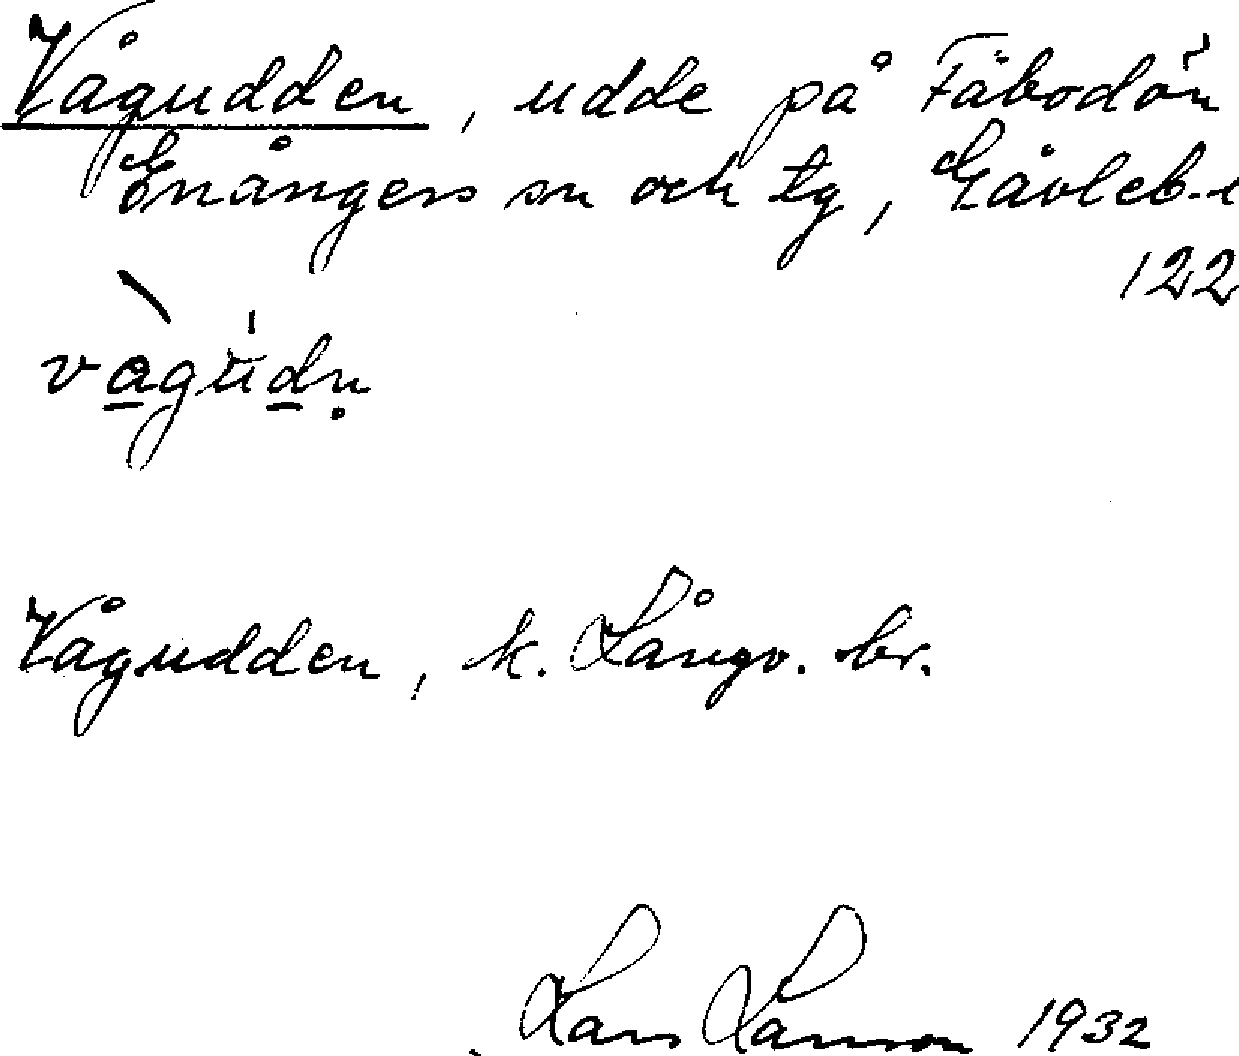 Vågudden, udde på Fäbodön
Enångers sn och tg, Gävleb.
122
vàgudn̥
Vågudden, k. Långv. br.
Lars Larsson 1932